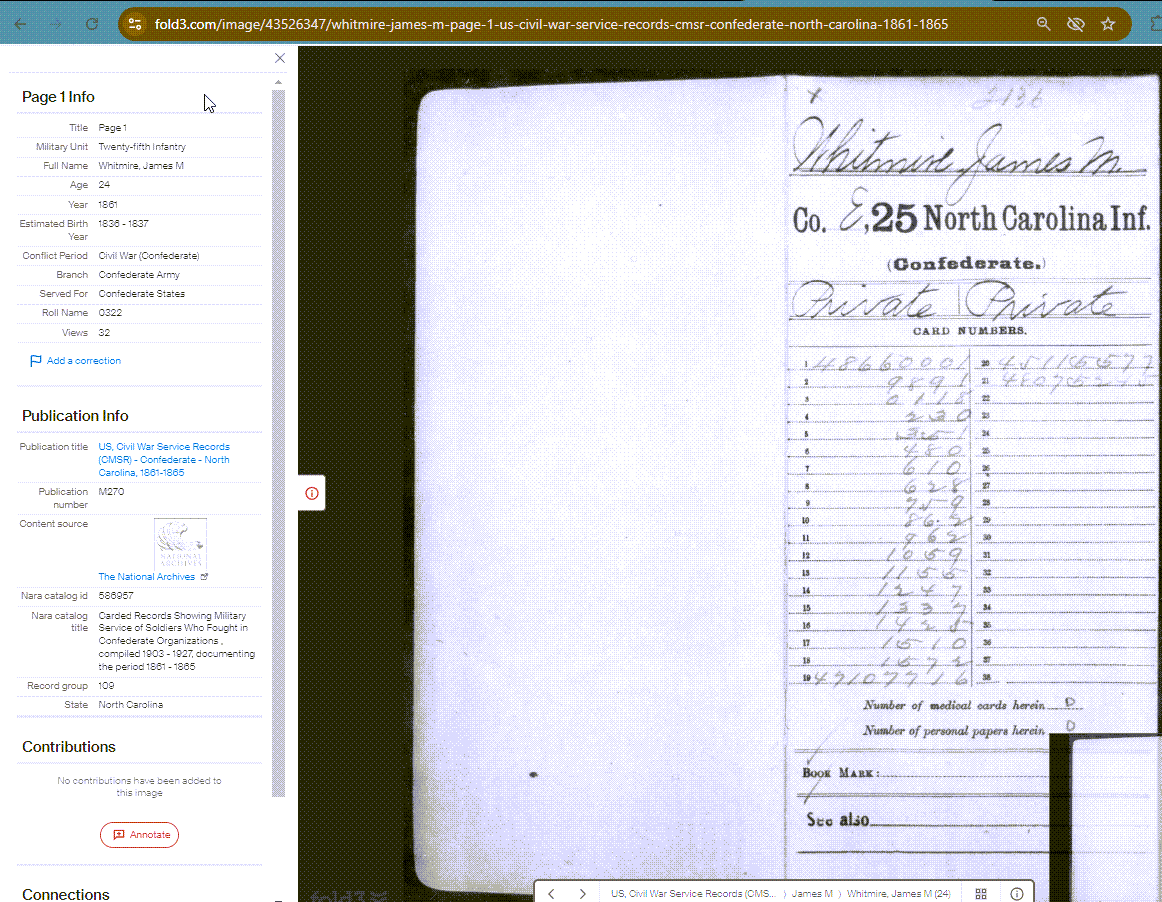 fold3.com/image/43526347/whitmire-james-m-page-1-us-civil-war-service-records-cmsr-confederate-north-carolina-1861-1865
Page 1 Info
Title Page 1
Military Unit Twenty-fifth Infantry
Full Name Whitmire, James M
Age 24
Year 1861
Estimated Birth Year 1836 - 1837
Conflict Period Civil War (Confederate)
Branch Confederate Army
Served For Confederate States
Roll Name 0322
Views 32
Add a correction
Publication Info
Publication title US, Civil War Service Records
(CMSR) - Confederate - North
Carolina, 1861-1865
Publication number M270
Content source
NATIONAL
ARCHIVES
The National Archives
Nara catalog id 586957
Nara catalog title Carded Records Showing Military
Service of Soldiers Who Fought in
Confederate Organizations ,
compiled 1903 - 1927, documenting
the period 1861 - 1865
Record group 109
State North Carolina
Contributions
No contributions have been added to
this image
Annotate
Connections
x
2136
Whitmire, James M.
Co. E, 25 North Carolina Inf.
(Confederate.)
Private | Private
CARD NUMBERS.
1 48660001 20
2 9891 21
3 0118 22
4 230 23
5 351 24
6 480 25
7 610 26
8 628 27
9 759 28
10 862 29
11 962 30
12 1059 31
13 1155 32
14 1247 33
15 1337 34
16 1428 35
17 1510 36
18 1572 37
19 47107716 38
Number of medical cards herein 0
Number of personal papers herein 0
BOOK MARK:
See also
fold3
US, Civil War Service Records (CMS... 〉 James M 〉 Whitmire, James M (24)